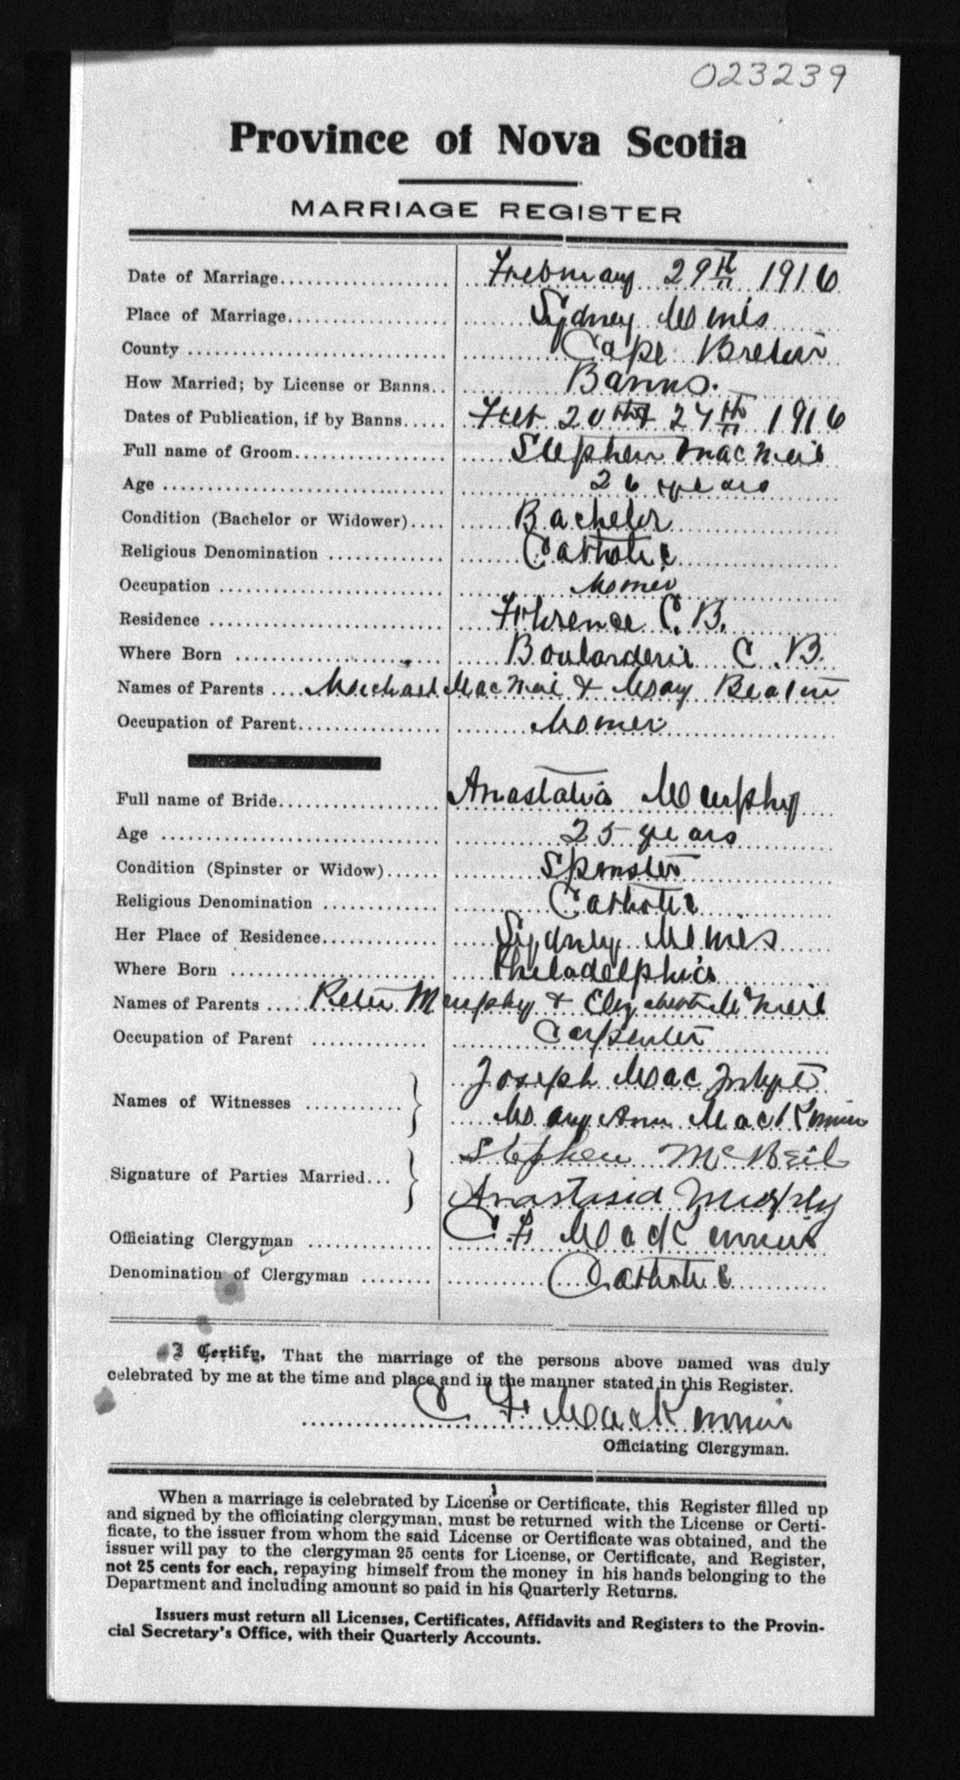 023239
Province of Nova Scotia
MARRIAGE REGISTER
Date of Marriage February 29th 1916
Place of Marriage Sydney Mines
County Cape Breton
How Married; by License or Banns Banns.
Dates of Publication, if by Banns Feb 20th & 27th 1916
Full name of Groom Stephen MacNeil
Age 26 years
Condition (Bachelor or Widower) Bachelor
Religious Denomination Catholic
Occupation Miner
Residence Florence C.B.
Where Born Boularderie C.B.
Names of Parents Michael MacNeil & May Beaton
Occupation of Parent Miner
Full name of Bride Anastatia Murphy
Age 25 years
Condition (Spinster or Widow) Spinster
Religious Denomination Catholic
Her Place of Residence Sydney Mines
Where Born Philadelphia
Names of Parents Peter Murphy & Elizabeth McNeil
Occupation of Parent Carpenter
Names of Witnesses Joseph MacIntyre
Mary Ann MacKinnon
Signature of Parties Married Stephen McNeil
Anastasia Murphy
Officiating Clergyman C F MacKinnon
Denomination of Clergyman Catholic
I Certify, That the marriage of the persons above named was duly
celebrated by me at the time and place and in the manner stated in this Register.
C. F. MacKinnon
Officiating Clergyman.
When a marriage is celebrated by License or Certificate, this Register filled up
and signed by the officiating clergyman, must be returned with the License or Certi-
ficate, to the issuer from whom the said License or Certificate was obtained, and the
issuer will pay to the clergyman 25 cents for License, or Certificate, and Register,
not 25 cents for each, repaying himself from the money in his hands belonging to the
Department and including amount so paid in his Quarterly Returns.
Issuers must return all Licenses, Certificates, Affidavits and Registers to the Provin-
cial Secretary's Office, with their Quarterly Accounts.